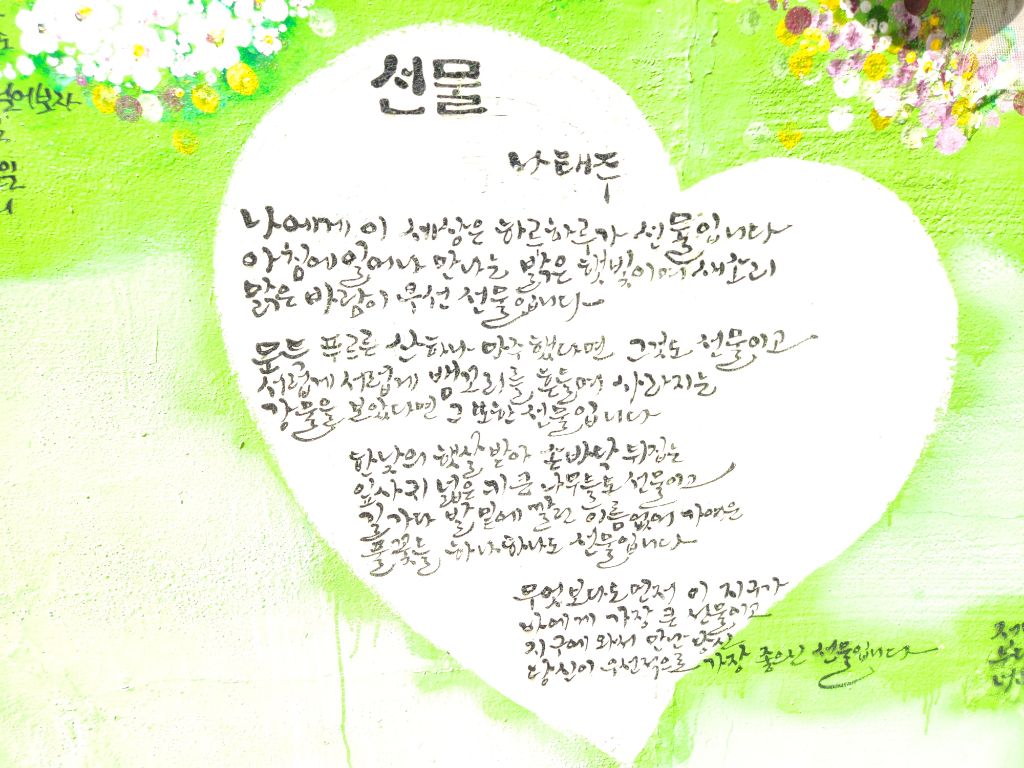 선물
나태주
나에게 이 세상은 하루하루가 선물입니다
아침에 일어나 만나는 밝은 햇빛이며 새소리
맑은 바람이 우선 선물입니다
문득 푸르른 산 하나 마주했다면 그것도 선물이고
서럽게 서럽게 뱀꼬리를 흔들며 사라지는
강물을 보았다면 그 또한 선물입니다
한낮의 햇살 받아 손바닥 뒤집는
잎사귀 넓은 키 큰 나무들도 선물이고
길 가다 발 밑에 깔린 이름없어 가여운
풀꽃들 하나하나도 선물입니다
무엇보다도 먼저 이 지구가
나에게 가장 큰 선물이고
지구에 와서 만난 당신
당신이 우선적으로 가장 좋으신 선물입니다